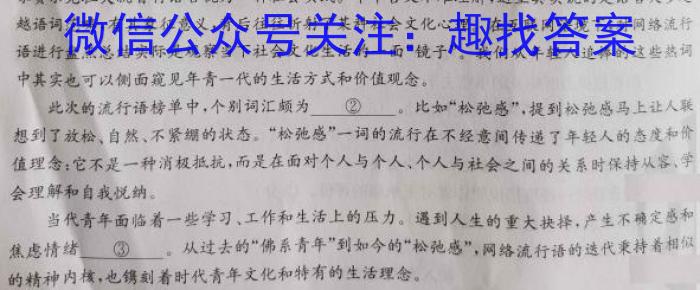 越语词
微信公众号关注：趣找答案
语进行
中其实也可以侧面窥见年青一代的生活方式和价值观念。
此次的流行语榜单中，个别词汇颇为 ② 。比如“松弛感”，提到松弛感马上让人联
想到了放松、自然、不紧绷的状态。“松弛感”一词的流行在不经意间传递了年轻人的态度和价
值理念：它不是一种消极抵抗，而是在面对个人与个人、个人与社会之间的关系时保持从容、学
会理解和自我悦纳。
当代青年面临着一些学习、工作和生活上的压力。遇到人生的重大抉择，产生不确定感和
焦虑情绪 ③ 。从过去的“佛系青年”到如今的“松弛感”，网络流行语的迭代秉持着相似
的精神内核，也镌刻着时代青年文化和特有的生活理念。